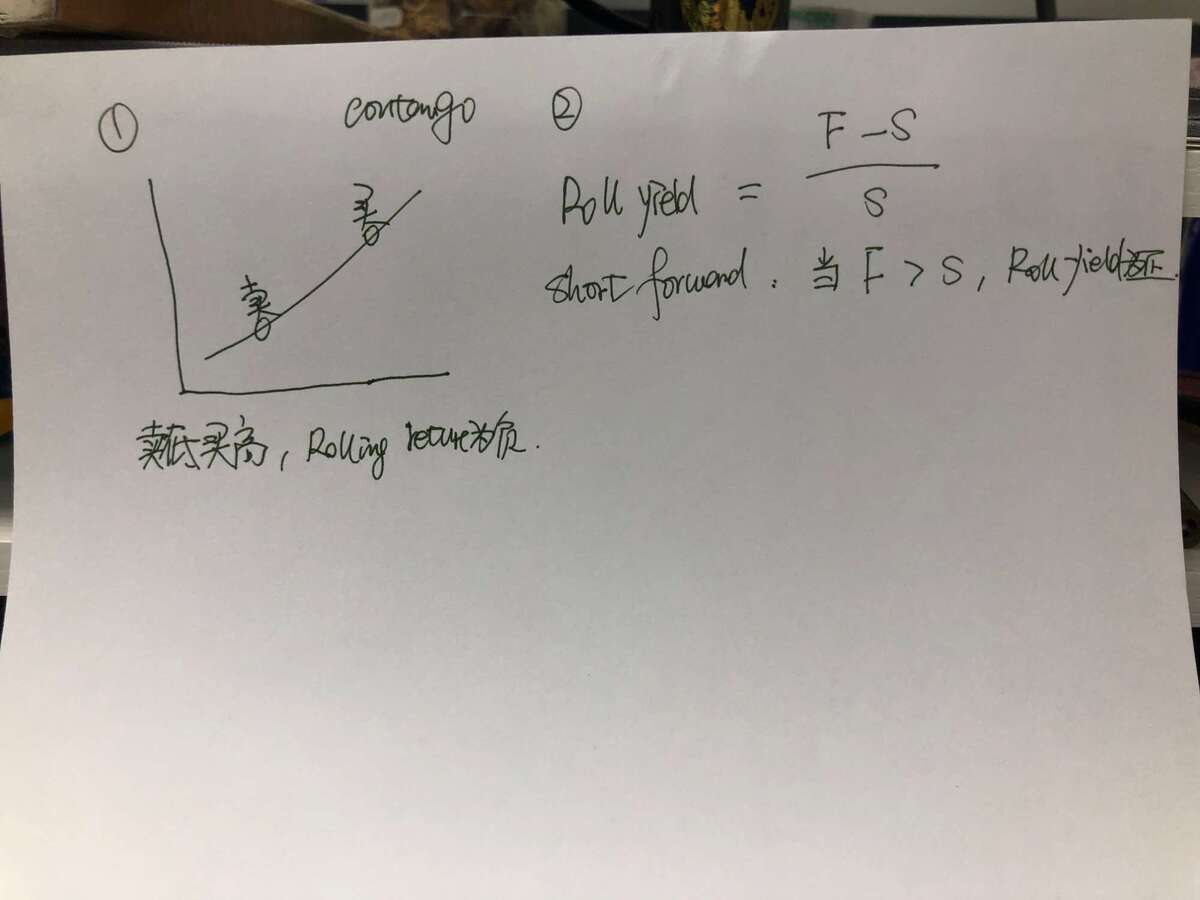 ① contango
买
卖
卖低买高, Rolling return为负.
②
Roll yield = F - S
S
short forward. 当 F > S, Roll yield为正.